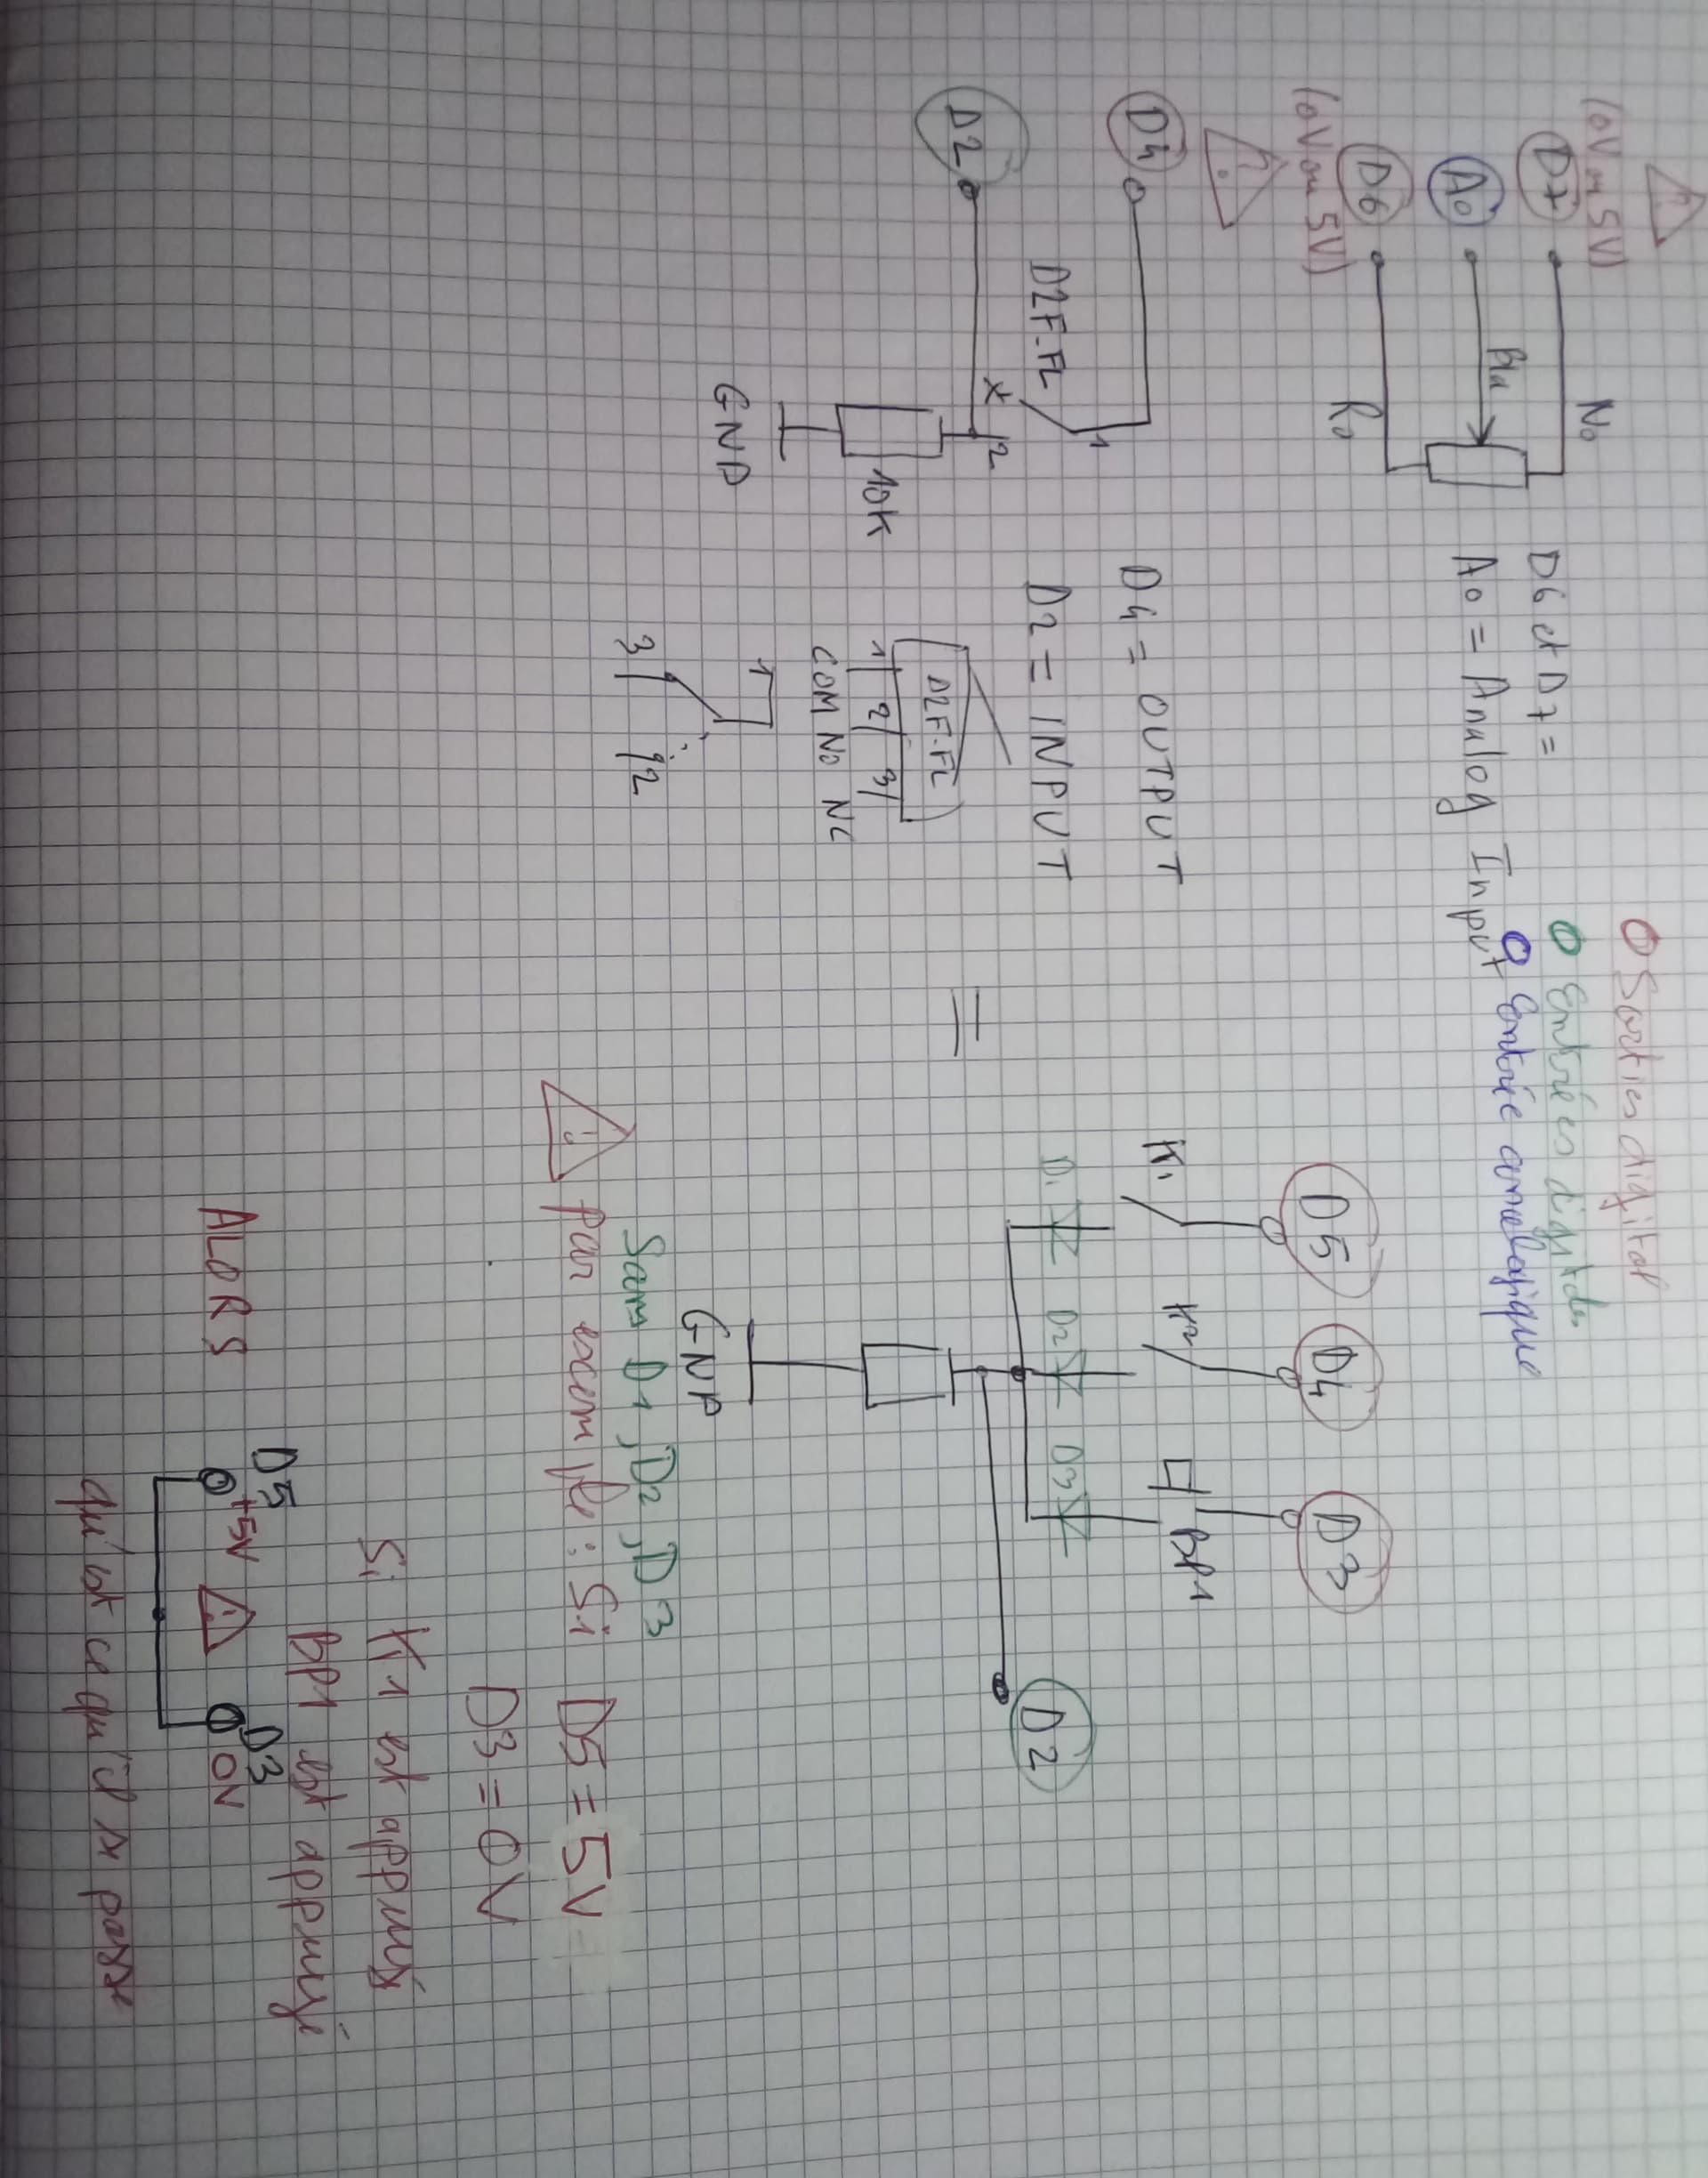 O Sorties digital
O Entrées digitales
O Entrée analogique
(0V ou 5V)
D7
No
A0
Blu
D6
Ro
(0V ou 5V)
D6 et D7 =
A0 = Analog Input
D4
D2F-FL
1
X
2
D2
10K
GND
D4 = OUTPUT
D2 = INPUT
D2F-FL
1 2 3
COM NO NC
1
3
2
=
D5
D4
D3
K1
K2
BP1
D1
D2
D3
D2
GND
Sans D1, D2, D3
par exemple : Si D5 = 5V
D3 = 0V
Si K1 est appuyé
BP1 est appuyé
ALORS
D5
D3
+5V
0V
qu'est ce qu'il se passe